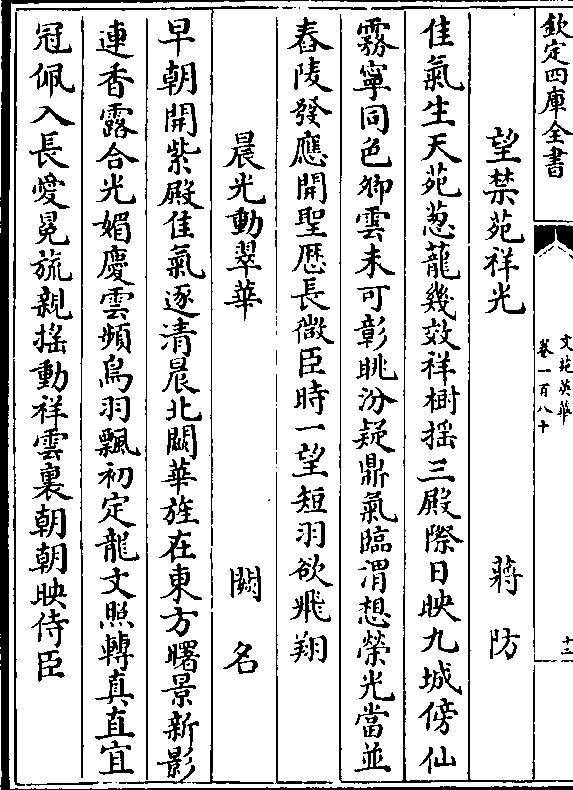 欽定四庫全書
文苑英華
卷一百八十
十三
望禁苑祥光 蔣防
佳氣生天苑葱蘢幾效祥樹揺三殿際日映九城傍仙
霧寧同色卿雲未可彰眺汾疑鼎氣臨渭想榮光當並
舂陵發應開聖歴長微臣時一望短羽欲飛翔
晨光動翠華 闕名
早朝開紫殿佳氣逐清晨北闕華旌在東方曙景新影
連香霧合光媚慶雲頻鳥羽飄初定龍文照轉真直宜
冠佩入長愛冕旒親揺動祥雲裏朝朝映侍臣